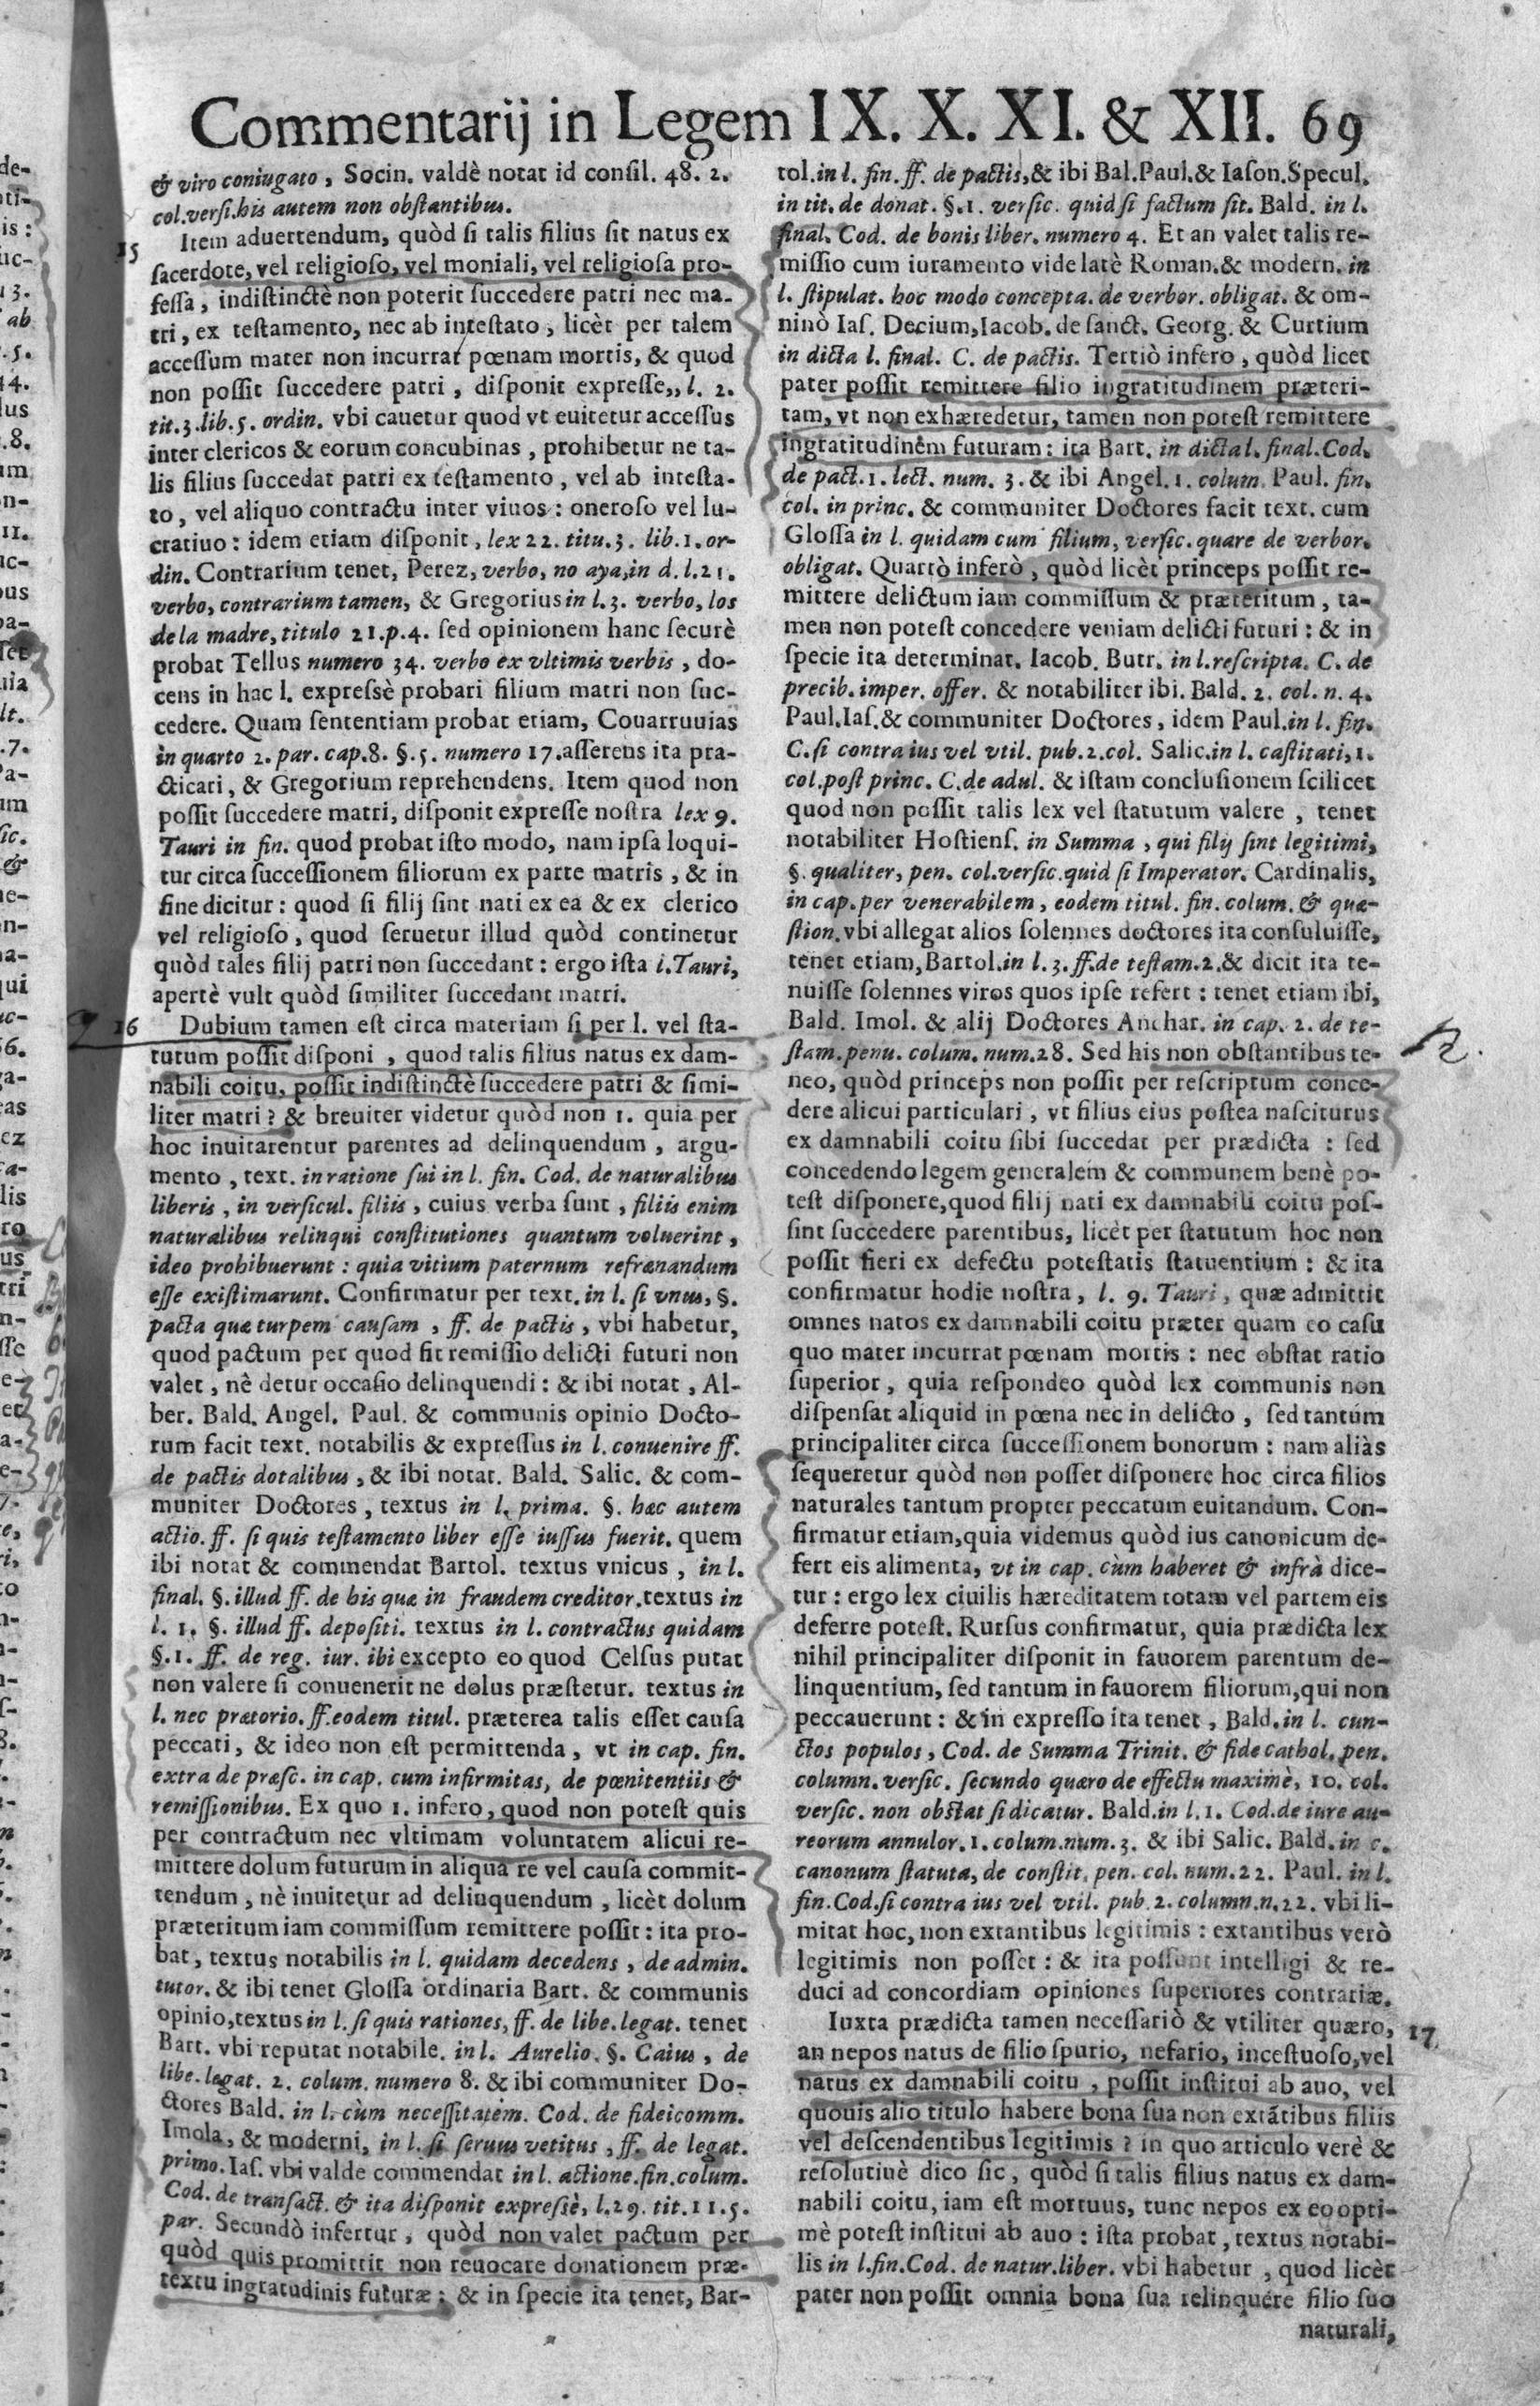 Commentarij in Legem IX. X. XI. & XII. 69
& viro coniugato, Socin. valdè notat id consil. 48. 2.
col. versi. his autem non obstantibus.
15
Item aduertendum, quòd si talis filius sit natus ex
sacerdote, vel religioso, vel moniali, vel religiosa pro-
fessa, indistinctè non poterit succedere patri nec ma-
tri, ex testamento, nec ab intestato, licèt per talem
accessum mater non incurrat pœnam mortis, & quod
non possit succedere patri, disponit expresse,, l. 2.
tit. 3. lib. 5. ordin. vbi cauetur quod vt euitetur accessus
inter clericos & eorum concubinas, prohibetur ne ta-
lis filius succedat patri ex testamento, vel ab intesta-
to, vel aliquo contractu inter viuos: oneroso vel lu-
cratiuo: idem etiam disponit, lex 22. titu. 3. lib. 1. or-
din. Contrarium tenet, Perez, verbo, no aya, in d. l. 21.
verbo, contrarium tamen, & Gregorius in l. 3. verbo, los
de la madre, titulo 21. p. 4. sed opinionem hanc securè
probat Tellus numero 34. verbo ex vltimis verbis, do-
cens in hac l. expressè probari filium matri non suc-
cedere. Quam sententiam probat etiam, Couarruuias
in quarto 2. par. cap. 8. §. 5. numero 17. asserens ita pra-
cticari, & Gregorium reprehendens. Item quod non
possit succedere matri, disponit expresse nostra lex 9.
Tauri in fin. quod probat isto modo, nam ipsa loqui-
tur circa successionem filiorum ex parte matris, & in
fine dicitur: quod si filij sint nati ex ea & ex clerico
vel religioso, quod seruetur illud quòd continetur
quòd tales filij patri non succedant: ergo ista l. Tauri,
apertè vult quòd similiter succedant matri.
16 Dubium tamen est circa materiam si per l. vel sta-
tutum possit disponi, quod talis filius natus ex dam-
nabili coitu, possit indistinctè succedere patri & simi-
liter matri? & breuiter videtur quòd non 1. quia per
hoc inuitarentur parentes ad delinquendum, argu-
mento, text. in ratione sui in l. fin. Cod. de naturalibus
liberis, in versicul. filiis, cuius verba sunt, filiis enim
naturalibus relinqui constitutiones quantum voluerint,
ideo prohibuerunt: quia vitium paternum refrænandum
esse existimarunt. Confirmatur per text. in l. si vnus, §.
pacta quæ turpem causam, ff. de pactis, vbi habetur,
quod pactum per quod fit remissio delicti futuri non
valet, nè detur occasio delinquendi: & ibi notat, Al-
ber. Bald. Angel. Paul. & communis opinio Docto-
rum facit text. notabilis & expressus in l. conuenire ff.
de pactis dotalibus, & ibi notat. Bald. Salic. & com-
muniter Doctores, textus in l. prima. §. hæc autem
actio. ff. si quis testamento liber esse iussus fuerit. quem
ibi notat & commendat Bartol. textus vnicus, in l.
final. §. illud ff. de his quæ in fraudem creditor. textus in
l. 1. §. illud ff. depositi. textus in l. contractus quidam
§. 1. ff. de reg. iur. ibi excepto eo quod Celsus putat
non valere si conuenerit ne dolus præstetur. textus in
l. nec prætorio. ff. eodem titul. præterea talis esset causa
peccati, & ideo non est permittenda, vt in cap. fin.
extra de præsc. in cap. cum infirmitas, de pœnitentiis &
remissionibus. Ex quo 1. infero, quod non potest quis
per contractum nec vltimam voluntatem alicui re-
mittere dolum futurum in aliqua re vel causa commit-
tendum, nè inuitetur ad delinquendum, licèt dolum
præteritum iam commissum remittere possit: ita pro-
bat, textus notabilis in l. quidam decedens, de admin.
tutor. & ibi tenet Glossa ordinaria Bart. & communis
opinio, textus in l. si quis rationes, ff. de libe. legat. tenet
Bart. vbi reputat notabile. in l. Aurelio. §. Caius, de
libe. legat. 2. colum. numero 8. & ibi communiter Do-
ctores Bald. in l. cùm necessitatem. Cod. de fideicomm.
Imola, & moderni, in l. si seruus vetitus, ff. de legat.
primo. Ias. vbi valde commendat in l. actione. fin. colum.
Cod. de transact. & ita disponit expressè, l. 29. tit. 11. 5.
par. Secundò infertur, quòd non valet pactum per
quòd quis promittit non reuocare donationem præ-
textu ingratudinis futuræ: & in specie ita tenet, Bar-
tol. in l. fin. ff. de pactis, & ibi Bal. Paul. & Iason. Specul.
in tit. de donat. §. 1. versic. quid si factum sit. Bald. in l.
final. Cod. de bonis liber. numero 4. Et an valet talis re-
missio cum iuramento vide latè Roman. & modern. in
l. stipulat. hoc modo concepta. de verbor. obligat. & om-
ninò Ias. Decium, Iacob. de sanct. Georg. & Curtium
in dicta l. final. C. de pactis. Tertiò infero, quòd licet
pater possit remittere filio ingratitudinem præteri-
tam, vt non exhæredetur, tamen non potest remittere
ingratitudinem futuram: ita Bart. in dicta l. final. Cod.
de pact. 1. lect. num. 3. & ibi Angel. 1. colum. Paul. fin.
col. in princ. & communiter Doctores facit text. cum
Glossa in l. quidam cum filium, versic. quare de verbor.
obligat. Quartò inferò, quòd licèt princeps possit re-
mittere delictum iam commissum & præteritum, ta-
men non potest concedere veniam delicti futuri: & in
specie ita determinat. Iacob. Butr. in l. rescripta. C. de
precib. imper. offer. & notabiliter ibi. Bald. 2. col. n. 4.
Paul. Ias. & communiter Doctores, idem Paul. in l. fin.
C. si contra ius vel vtil. pub. 2. col. Salic. in l. castitati, 1.
col. post princ. C. de adul. & istam conclusionem scilicet
quod non possit talis lex vel statutum valere, tenet
notabiliter Hostiens. in Summa, qui filij sint legitimi,
§. qualiter, pen. col. versic. quid si Imperator. Cardinalis,
in cap. per venerabilem, eodem titul. fin. colum. & quæ-
stion. vbi allegat alios solennes doctores ita consuluisse,
tenet etiam, Bartol. in l. 3. ff. de testam. 2. & dicit ita te-
nuisse solennes viros quos ipse refert: tenet etiam ibi,
Bald. Imol. & alij Doctores Anchar. in cap. 2. de te-
stam. penu. colum. num. 28. Sed his non obstantibus te-
neo, quòd princeps non possit per rescriptum conce-
dere alicui particulari, vt filius eius postea nasciturus
ex damnabili coitu sibi succedat per prædicta: sed
concedendo legem generalem & communem benè po-
test disponere, quod filij nati ex damnabili coitu pos-
sint succedere parentibus, licèt per statutum hoc non
possit fieri ex defectu potestatis statuentium: & ita
confirmatur hodie nostra, l. 9. Tauri, quæ admittit
omnes natos ex damnabili coitu præter quam eo casu
quo mater incurrat pœnam mortis: nec obstat ratio
superior, quia respondeo quòd lex communis non
dispensat aliquid in pœna nec in delicto, sed tantùm
principaliter circa successionem bonorum: nam aliàs
sequeretur quòd non posset disponere hoc circa filios
naturales tantum propter peccatum euitandum. Con-
firmatur etiam, quia videmus quòd ius canonicum de-
fert eis alimenta, vt in cap. cùm haberet & infrà dice-
tur: ergo lex ciuilis hæreditatem totam vel partem eis
deferre potest. Rursus confirmatur, quia prædicta lex
nihil principaliter disponit in fauorem parentum de-
linquentium, sed tantum in fauorem filiorum, qui non
peccauerunt: & in expresso ita tenet, Bald. in l. cun-
ctos populos, Cod. de Summa Trinit. & fide cathol. pen.
column. versic. secundo quæro de effectu maximè, 10. col.
versic. non obstat si dicatur. Bald. in l. 1. Cod. de iure au-
reorum annulor. 1. colum. num. 3. & ibi Salic. Bald. in c.
canonum statuta, de constit. pen. col. num. 22. Paul. in l.
fin. Cod. si contra ius vel vtil. pub. 2. column. n. 22. vbi li-
mitat hoc, non extantibus legitimis: extantibus verò
legitimis non posset: & ita possunt intelligi & re-
duci ad concordiam opiniones superiores contrariæ.
Iuxta prædicta tamen necessariò & vtiliter quæro, 17
an nepos natus de filio spurio, nefario, incestuoso, vel
natus ex damnabili coitu, possit institui ab auo, vel
quouis alio titulo habere bona sua non extãtibus filiis
vel descendentibus legitimis? in quo articulo verè &
resolutiuè dico sic, quòd si talis filius natus ex dam-
nabili coitu, iam est mortuus, tunc nepos ex eo opti-
mè potest institui ab auo: ista probat, textus notabi-
lis in l. fin. Cod. de natur. liber. vbi habetur, quod licèt
pater non possit omnia bona sua relinquére filio suo
naturali,